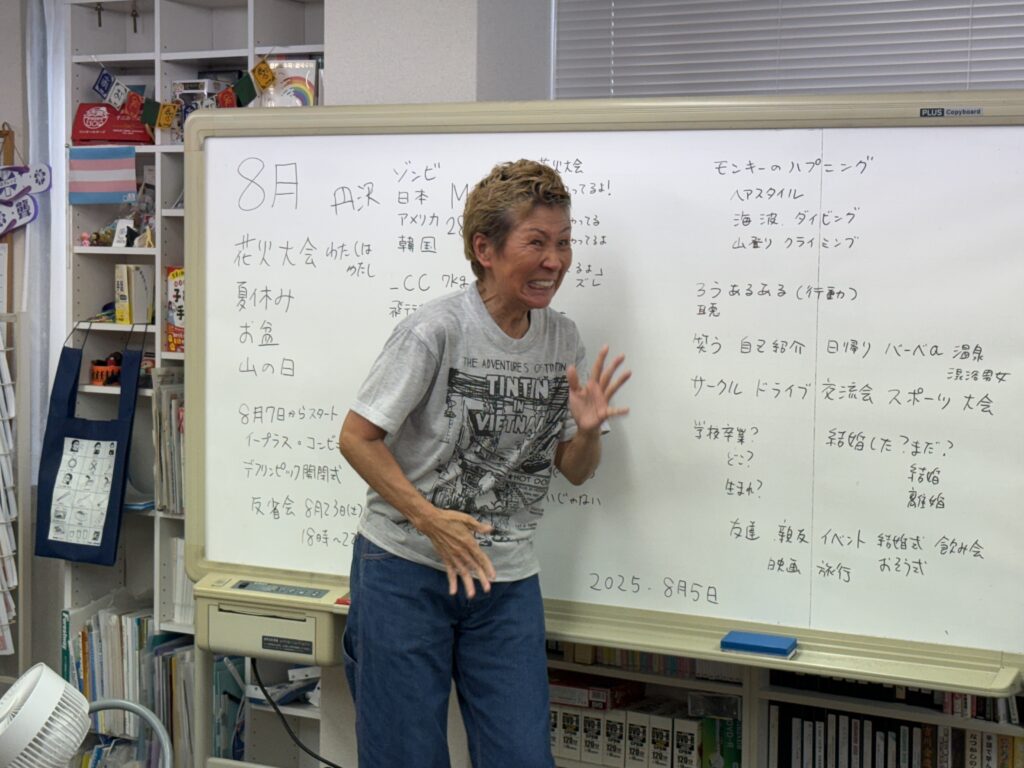 PLUS Copyboard
8月
丹沢
花火大会 わたしは
わたし
夏休み
お盆
山の日
8月7日からスタート
イープラス・コンビ
デフリンピック開閉式
反省会 8月23日(土)
18時〜22
ゾンビ
日本 M
アメリカ 28
韓国
_CC 7kg
花火大会
ってるよ!
ってる
ってるよ
るよ」
ズレ
いじゃない
THE ADVENTURES OF TINTIN
TINTIN
IN
VIETNAM
モンキーのハプニング
ヘアスタイル
海 波 ダイビング
山登り クライミング
ろうあるある(行動)
聾
笑う 自己紹介 日帰り バーベQ 温泉
混浴男女
サークル ドライブ 交流会 スポーツ大会
学校卒業? 結婚した?まだ?
どこ? 結婚
生まれ? 離婚
友達 親友 イベント 結婚式 飲み会
映画 旅行 おそう式
2025.8月5日